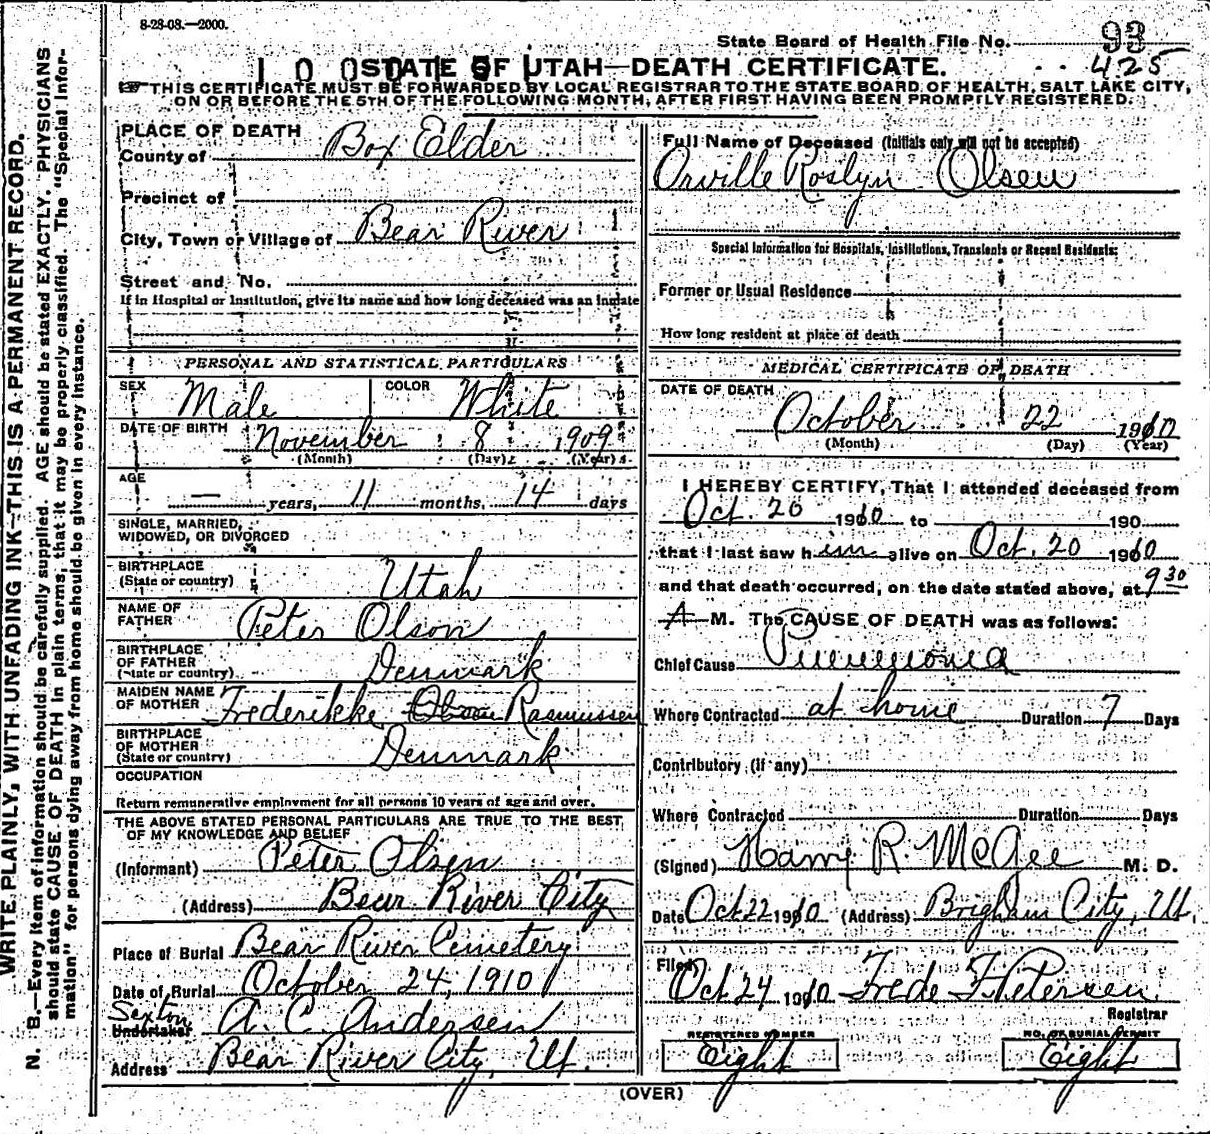 8-28-08.—2000.
State Board of Health File No. 93
425
STATE OF UTAH—DEATH CERTIFICATE.
☞THIS CERTIFICATE MUST BE FORWARDED BY LOCAL REGISTRAR TO THE STATE BOARD OF HEALTH, SALT LAKE CITY,
ON OR BEFORE THE 5TH OF THE FOLLOWING MONTH, AFTER FIRST HAVING BEEN PROMPTLY REGISTERED.
WRITE PLAINLY, WITH UNFADING INK—THIS IS A PERMANENT RECORD.
N. B.—Every item of information should be carefully supplied. AGE should be stated EXACTLY. PHYSICIANS
should state CAUSE OF DEATH in plain terms, that it may be properly classified. The "Special Infor-
mation" for persons dying away from home should be given in every instance.
PLACE OF DEATH
County of Box Elder
Precinct of
City, Town or Village of Bear River
Street and No.
If in Hospital or Institution, give its name and how long deceased was an inmate
PERSONAL AND STATISTICAL PARTICULARS
SEX Male COLOR White
DATE OF BIRTH November 8 1909
(Month) (Day) (Year)
AGE
— years, 11 months, 14 days
SINGLE, MARRIED,
WIDOWED, OR DIVORCED
BIRTHPLACE
(State or country) Utah
NAME OF
FATHER Peter Olson
BIRTHPLACE
OF FATHER
(State or country) Denmark
MAIDEN NAME
OF MOTHER Frederikke Olson Rasmussen
BIRTHPLACE
OF MOTHER
(State or country) Denmark
OCCUPATION
Return remunerative employment for all persons 10 years of age and over.
THE ABOVE STATED PERSONAL PARTICULARS ARE TRUE TO THE BEST
OF MY KNOWLEDGE AND BELIEF
(Informant) Peter Olsen
(Address) Bear River City
Place of Burial Bear River Cemetery
Date of Burial October 24, 1910
Sexton
Undertaker A. C. Andersen
Address Bear River City, Ut.
Full Name of Deceased (Initials only will not be accepted)
Orville Roslyn Olsen
Special Information for Hospitals, Institutions, Transients or Recent Residents:
Former or Usual Residence
How long resident at place of death
MEDICAL CERTIFICATE OF DEATH
DATE OF DEATH
October 22 1910
(Month) (Day) (Year)
I HEREBY CERTIFY, That I attended deceased from
Oct. 20 1910 to 190
that I last saw him alive on Oct. 20 1910
and that death occurred, on the date stated above, at 9 30
A M. The CAUSE OF DEATH was as follows:
Chief Cause Pneumonia
Where Contracted at home Duration 7 Days
Contributory (if any)
Where Contracted Duration Days
(Signed) R. McGee M. D.
Date Oct 22 1910 (Address) Brigham City, Ut.
Filed
Oct 24 1910 Frede F. Petersen
Registrar
REGISTERED NUMBER
Eight
NO. OF BURIAL PERMIT
Eight
(OVER)